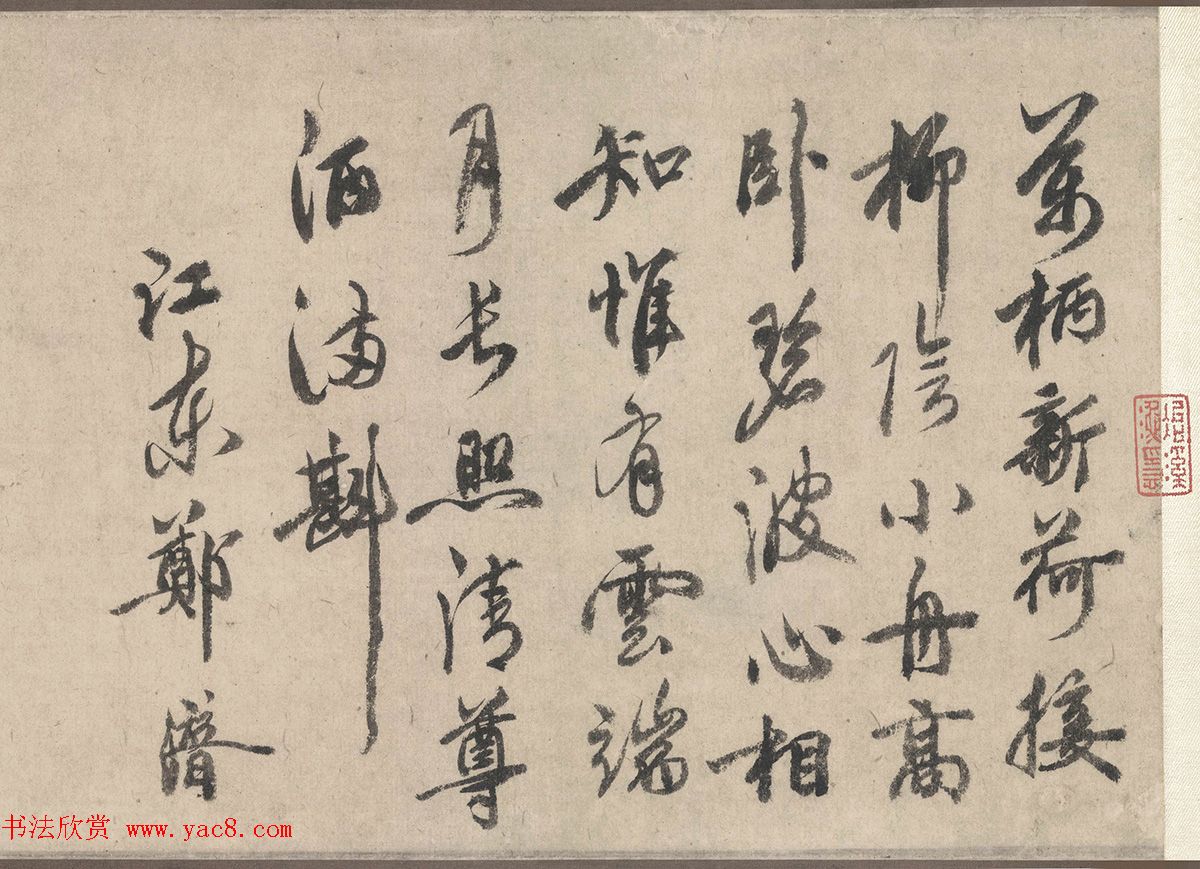 萬柄新荷接
柳陰小舟高
臥碧波心相
知惟有雲端
月長照清尊
酒滿斟
江東鄭濟
书法欣赏 www.yac8.com